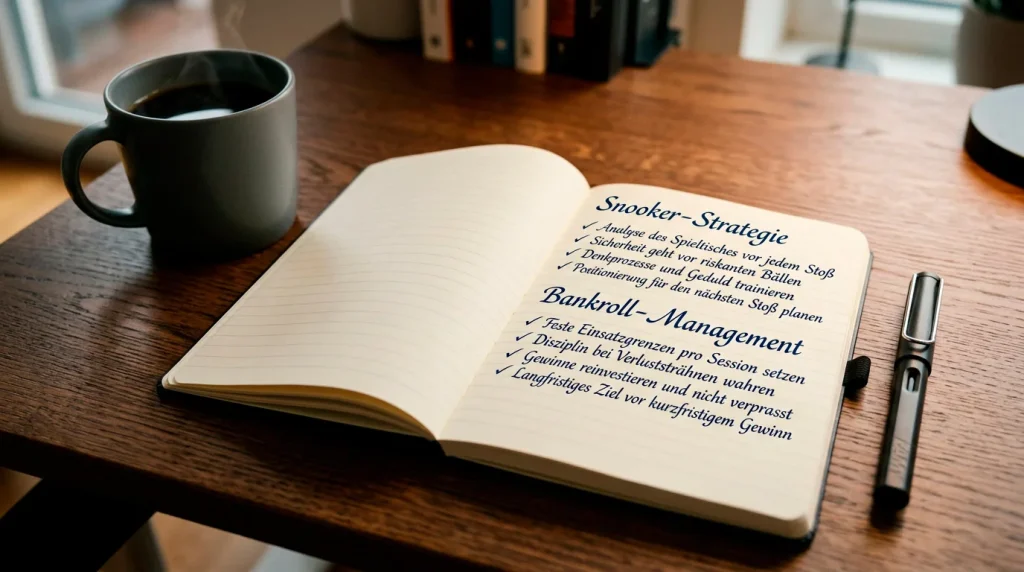 Snooker-Strategie
✓ Analyse des Spieltisches vor jedem Stoß
✓ Sicherheit geht vor riskanten Bällen
✓ Denkprozesse und Geduld trainieren
✓ Positionierung für den nächsten Stoß planen
Bankroll-Management
✓ Feste Einsatzgrenzen pro Session setzen
✓ Disziplin bei Verluststrähnen wahren
✓ Gewinne reinvestieren und nicht verprasst
✓ Langfristiges Ziel vor kurzfristigem Gewinn